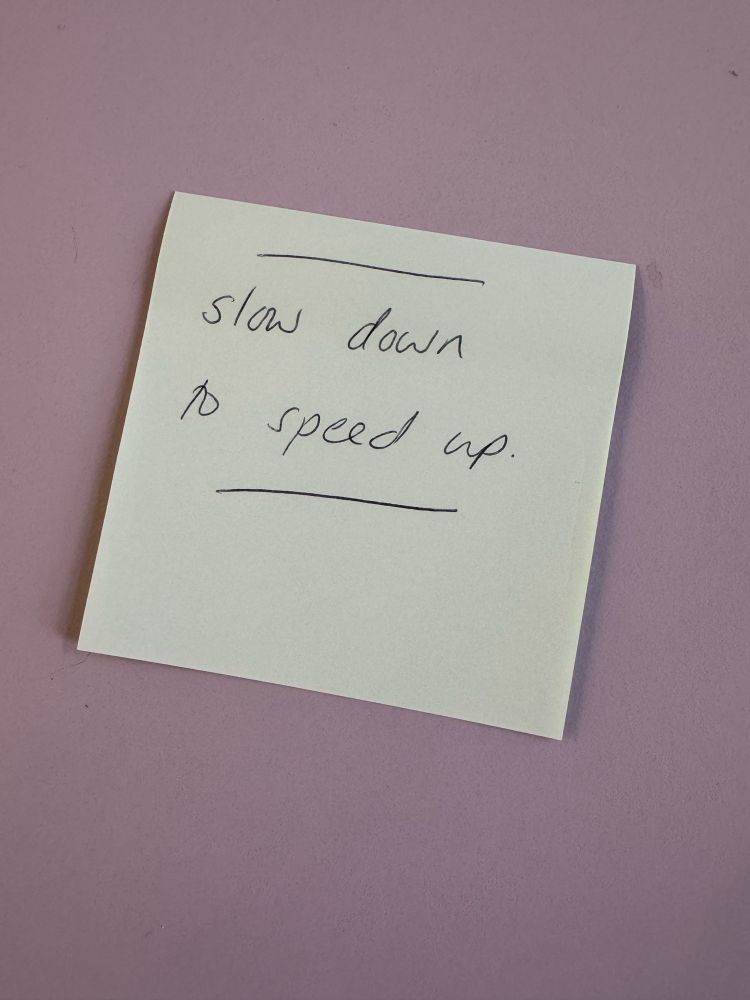 slow down
to speed up.